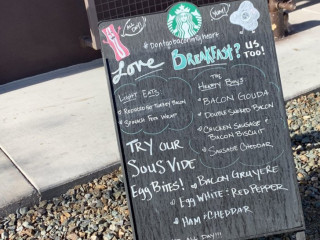 #Dontgobaconmyheart
Love BREAKFAST? US, TOO!
LIGHT EATS
REDUCED FAT TURKEY BACON
SPINACH FETA WRAP
THE HEARTY BOYS
BACON GOUDA
DOUBLE SMOKED BACON
CHICKEN SAUSAGE & BACON BISCUIT
SAUSAGE CHEDDAR
TRY OUR
SOUS VIDE
EGG BITES!
BACON GRUYERE
EGG WHITE & RED PEPPER
HAM & CHEDDAR
ALL DAY!!!